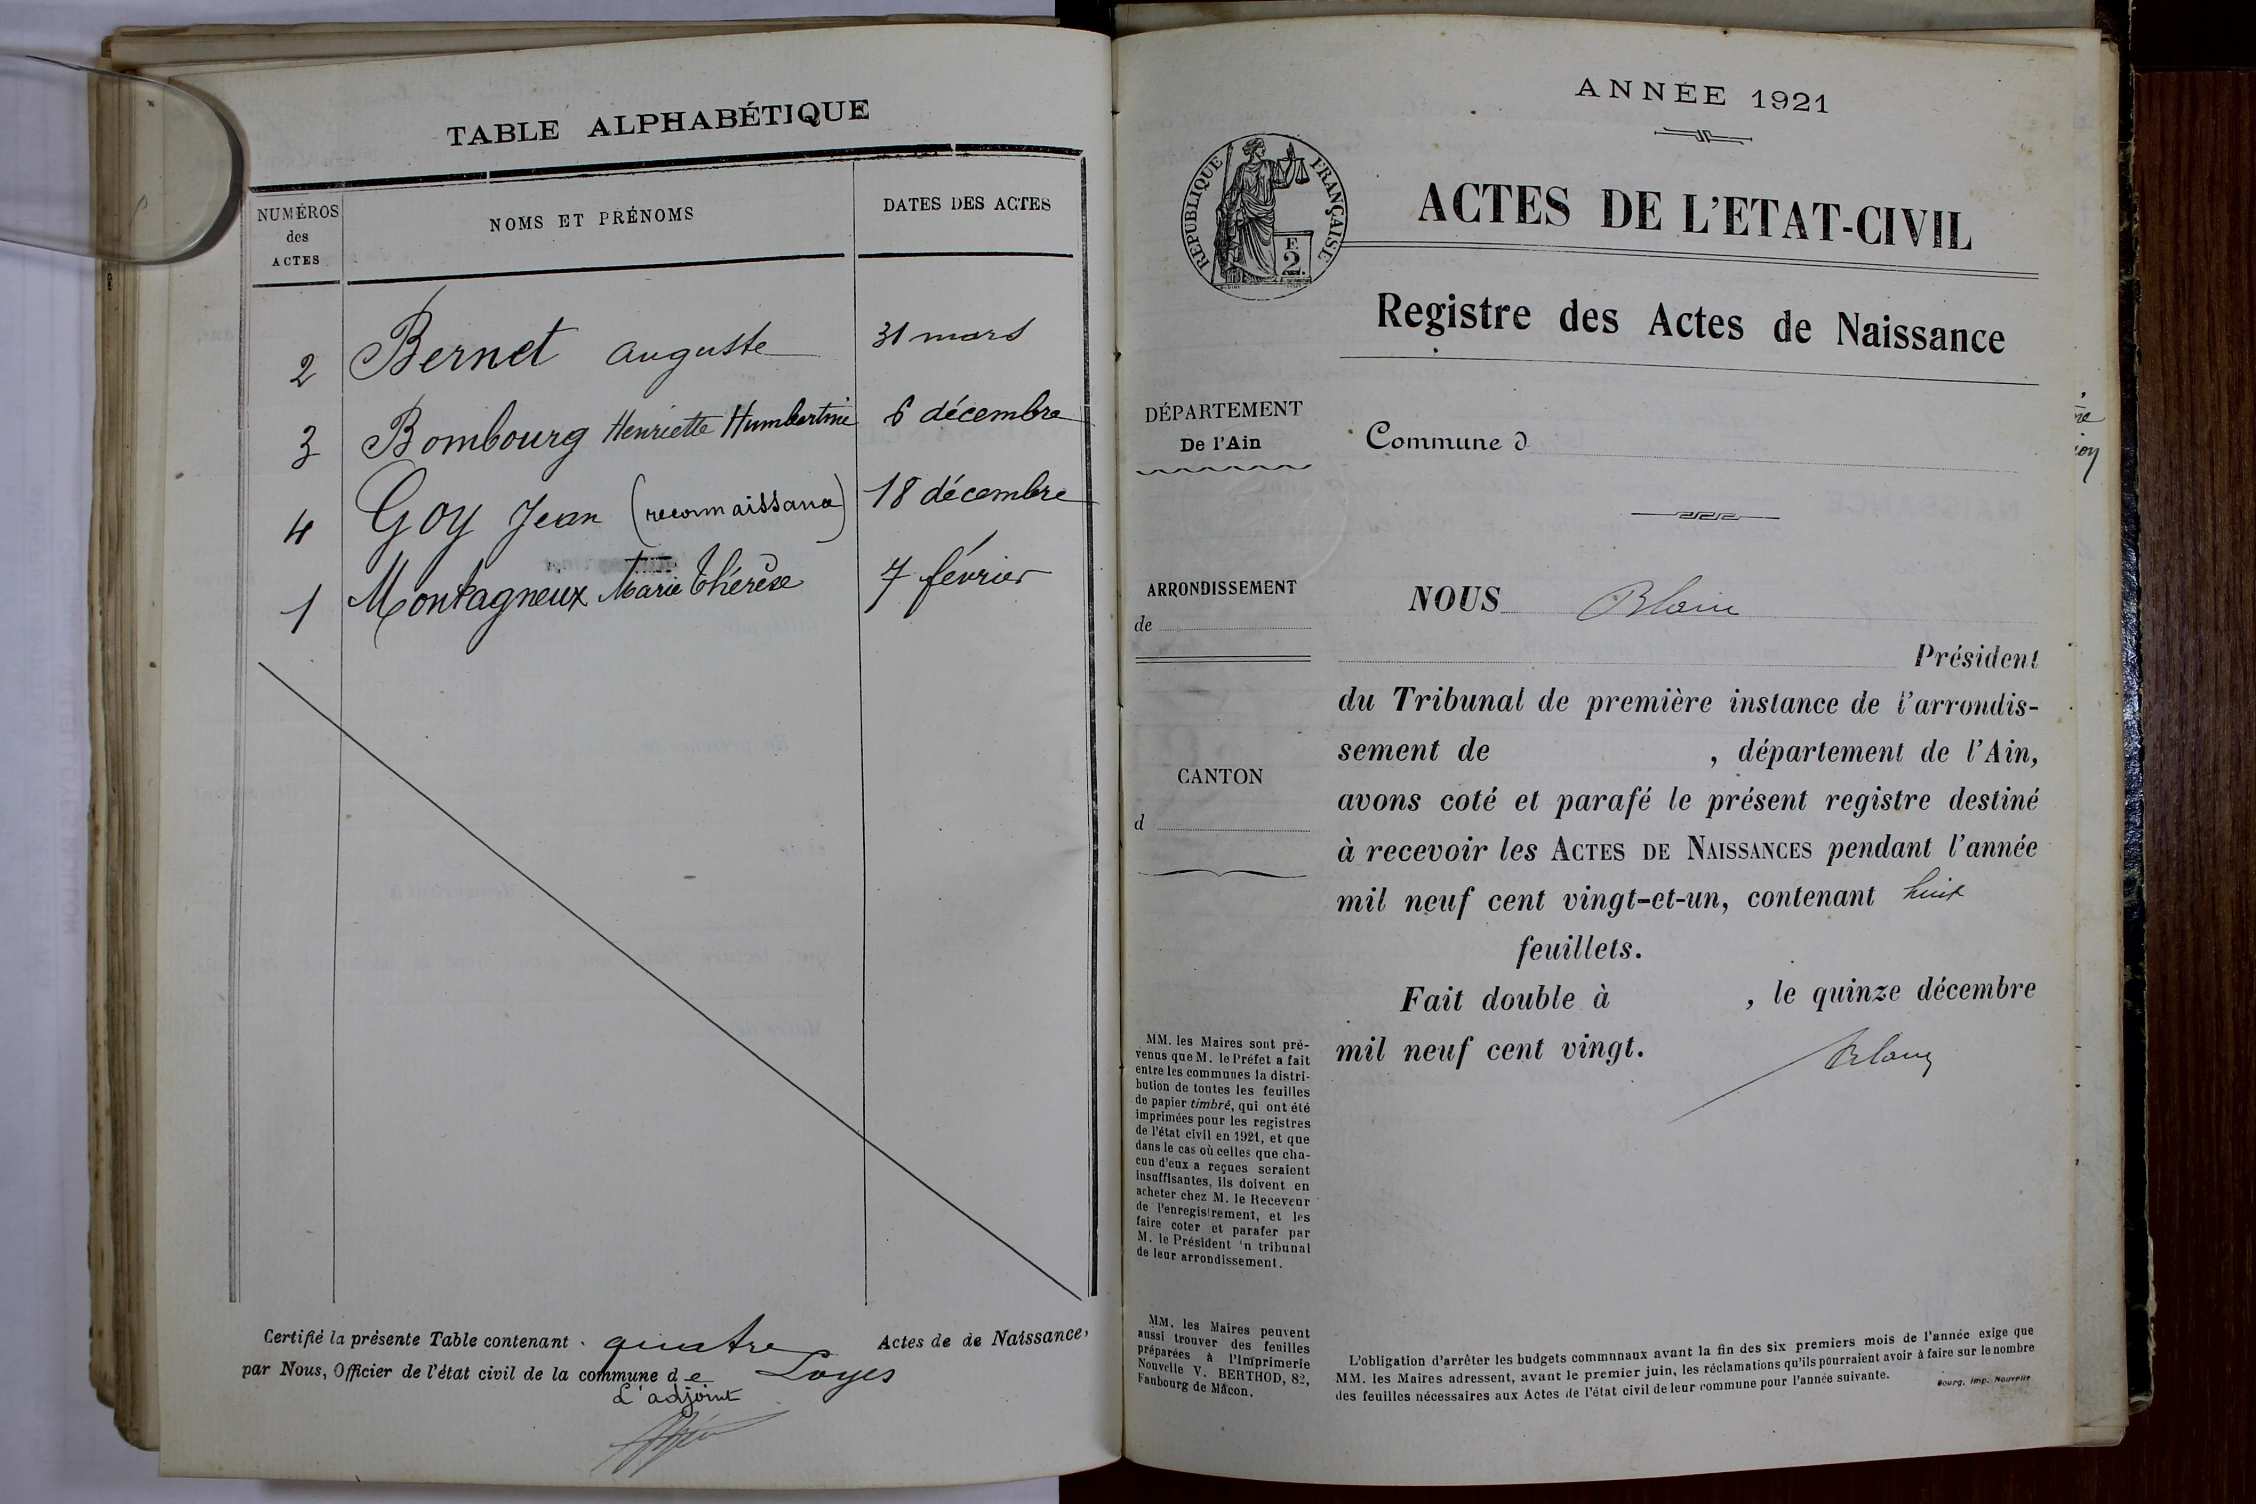 TABLE ALPHABÉTIQUE
NUMÉROS
des
ACTES
NOMS ET PRÉNOMS
DATES DES ACTES
2 Bernet Auguste 31 mars
3 Bombourg Henriette Humbertine 6 décembre
4 Goy Jean (reconnaissance) 18 décembre
1 Montagneux Marie Thérèse 7 février
Certifié la présente Table contenant quatre Actes de de Naissance,
par Nous, Officier de l'état civil de la commune de Loyes
L'adjoint
ANNÉE 1921
RÉPUBLIQUE FRANÇAISE
F.
2.
ACTES DE L'ETAT-CIVIL
Registre des Actes de Naissance
DÉPARTEMENT
De l'Ain
Commune d
ARRONDISSEMENT
de
CANTON
d
NOUS
Président
du Tribunal de première instance de l'arrondis-
sement de , département de l'Ain,
avons coté et parafé le présent registre destiné
à recevoir les ACTES DE NAISSANCES pendant l'année
mil neuf cent vingt-et-un, contenant huit
feuillets.
Fait double à , le quinze décembre
mil neuf cent vingt.
MM. les Maires sont pré-
venus que M. le Préfet a fait
entre les communes la distri-
bution de toutes les feuilles
de papier timbré, qui ont été
imprimées pour les registres
de l'état civil en 1921, et que
dans le cas où celles que cha-
cun d'eux a reçues seraient
insuffisantes, ils doivent en
acheter chez M. le Receveur
de l'enregistrement, et les
faire coter et parafer par
M. le Président 'n tribunal
de leur arrondissement.
MM. les Maires peuvent
aussi trouver des feuilles
préparées à l'Imprimerie
Nouvelle V. BERTHOD, 82,
Faubourg de Mâcon.
L'obligation d'arrêter les budgets communaux avant la fin des six premiers mois de l'année exige que
MM. les Maires adressent, avant le premier juin, les réclamations qu'ils pourraient avoir à faire sur le nombre
des feuilles nécessaires aux Actes de l'état civil de leur commune pour l'année suivante.
Bourg, Imp. Nouvelle